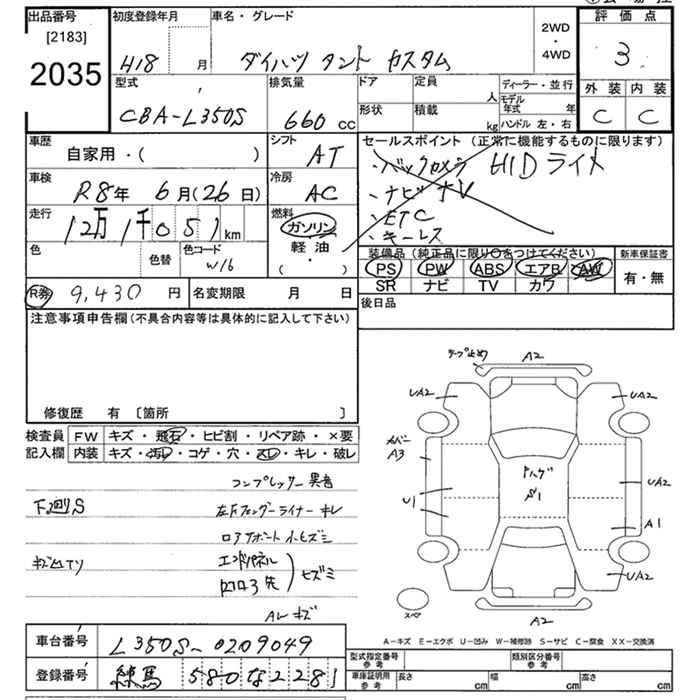 出品番号
[2183]
2035
初度登録年月
H18 月
車名・グレード
ダイハツ タント カスタム
2WD
・
4WD
評価点
3
外装 内装
C C
型式
CBA-L350S
排気量
660 cc
ドア
形状
定員
人
積載
kg
ディーラー・並行
モデル年式 年
ハンドル 左・右
車歴
自家用・( )
シフト
AT
セールスポイント (正常に機能するものに限ります)
・バックカメラ HIDライト
・ナビ TV
・ETC
・キーレス
車検
R8年 6月(26日)
冷房
AC
走行
12万1千051km
燃料
ガソリン
軽油
( ・ )
色
色替
色コード
W16
装備品 (純正品に限り○をつけてください)
PS PW ABS エアB AW
SR ナビ TV カワ
新車保証書
有・無
R券 9,430 円
名変期限 月 日
後日品
注意事項申告欄(不具合内容等は具体的に記入して下さい)
修復歴 有 〔箇所 〕
検査員
記入欄
FW キズ・飛石・ヒビ割・リペア跡・×要
内装 キズ・汚レ・コゲ・穴・スレ・キレ・破レ
コンプレッサー異音
下廻りS
左Fフェンダーライナーキレ
ロアサポート小ヒズミ
エンドパネル
ヒズミ
AWキズ
テープ止め
A2
UA2
UA2
A3
U1
UA2
A1
UA2
A2
S1
スペア
A-キズ E-エクボ U-凹み W-補修跡 S-サビ C-腐食 XX-交換済
車台番号 L350S-0209049
登録番号 練馬 580な2281
型式指定番号
参考
類別区分番号
参考
車庫証明用
参考
長さ cm
幅 cm
高さ cm